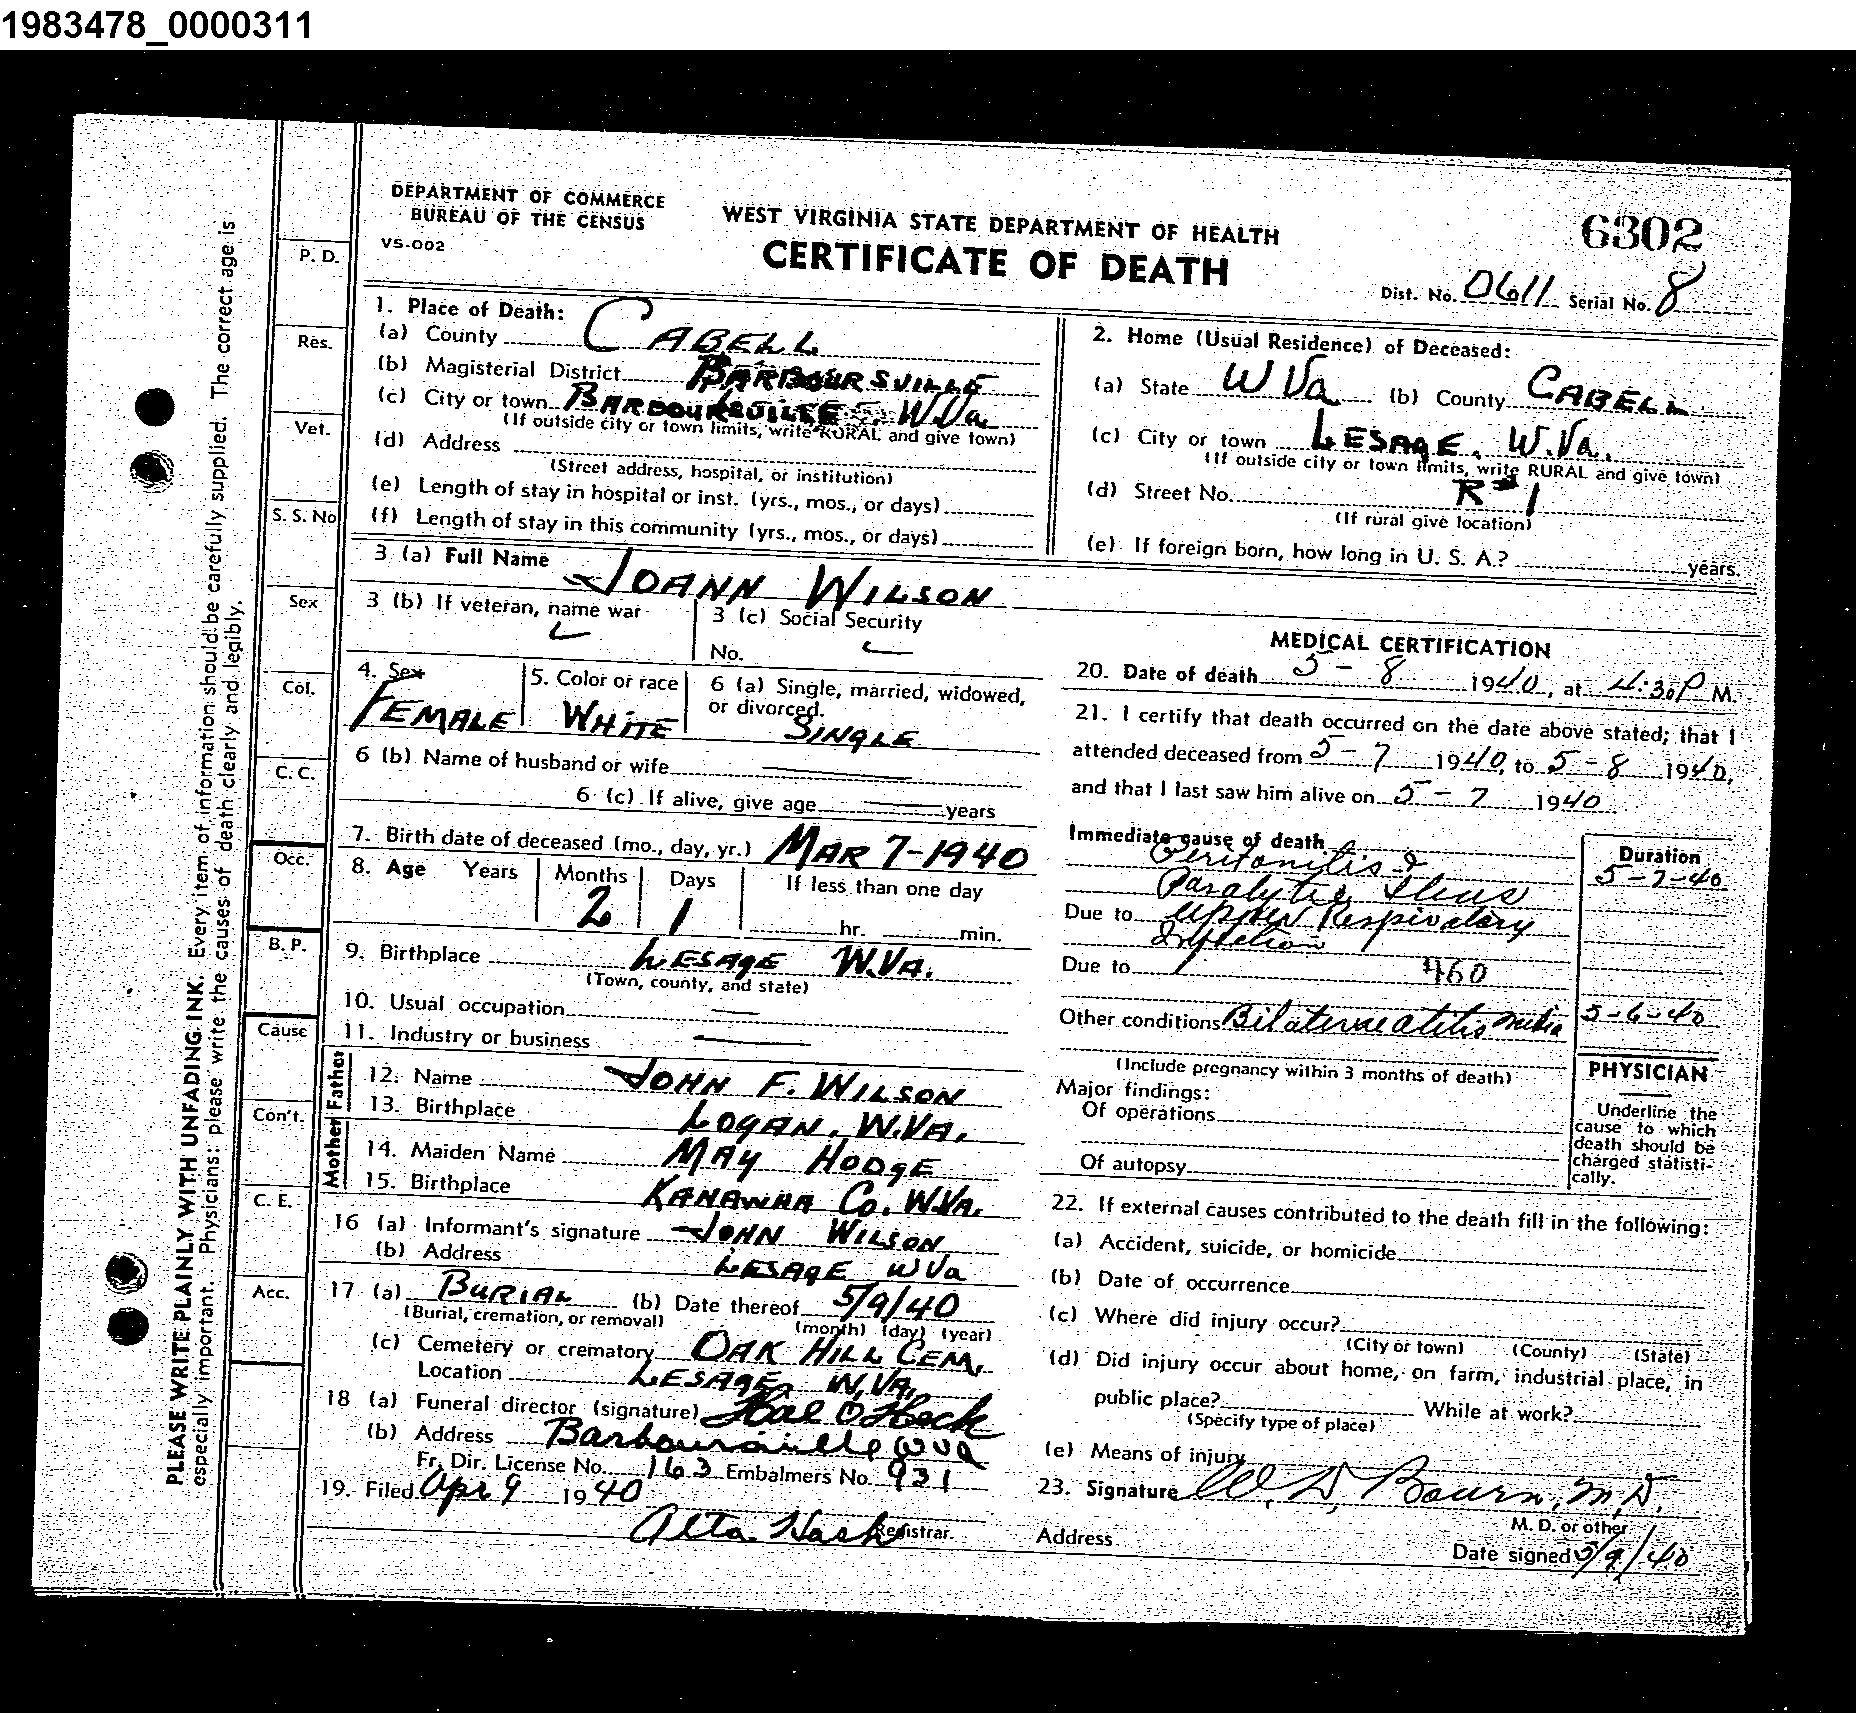 1983478_0000311
DEPARTMENT OF COMMERCE
BUREAU OF THE CENSUS
VS-002
WEST VIRGINIA STATE DEPARTMENT OF HEALTH
CERTIFICATE OF DEATH
6302
Dist. No. 0611 Serial No. 8
PLEASE WRITE PLAINLY WITH UNFADING INK. Every item of information should be carefully supplied. The correct age is
especially important. Physicians: please write the causes of death clearly and legibly.
P. D.
Res.
Vet.
S. S. No
Sex
Col.
C. C.
Occ.
B. P.
Cause
Con't.
C. E.
Acc.
1. Place of Death:
(a) County CABELL
(b) Magisterial District BARBOURSVILLE
(c) City or town BARBOURSVILLE W.Va.
(If outside city or town limits, write RURAL and give town)
(d) Address
(Street address, hospital, or institution)
(e) Length of stay in hospital or inst. (yrs., mos., or days)
(f) Length of stay in this community (yrs., mos., or days)
2. Home (Usual Residence) of Deceased:
(a) State W Va (b) County CABELL
(c) City or town LESAGE. W.Va.
(If outside city or town limits, write RURAL and give town)
(d) Street No. R#1
(If rural give location)
(e) If foreign born, how long in U. S. A.? years.
3 (a) Full Name JOANN WILSON
3 (b) If veteran, name war
3 (c) Social Security
No.
4. Sex FEMALE
5. Color or race WHITE
6 (a) Single, married, widowed,
or divorced. SINGLE
6 (b) Name of husband or wife
6 (c) If alive, give age years
7. Birth date of deceased (mo., day, yr.) MAR 7-1940
8. Age Years Months Days If less than one day
2 1 hr. min.
9. Birthplace LESAGE W.VA.
(Town, county, and state)
10. Usual occupation
11. Industry or business
Father
12. Name JOHN F. WILSON
13. Birthplace LOGAN, W.VA.
Mother
14. Maiden Name MAY HODGE
15. Birthplace KANAWHA Co. W.VA.
16 (a) Informant's signature JOHN WILSON
(b) Address LESAGE W Va
17 (a) BURIAL (b) Date thereof 5/9/40
(Burial, cremation, or removal) (month) (day) (year)
(c) Cemetery or crematory OAK HILL CEM.
Location LESAGE, W.VA.
18 (a) Funeral director (signature) Hal O Heck
(b) Address Barboursville W Va
Fr. Dir. License No. 163 Embalmers No. 931
19. Filed Apr 9 1940
Alta Nash Registrar.
MEDICAL CERTIFICATION
20. Date of death 5-8 1940, at 4:30 P M.
21. I certify that death occurred on the date above stated; that I
attended deceased from 5-7 1940, to 5-8 1940,
and that I last saw him alive on 5-7 1940
Immediate cause of death Peritonitis &
Paralytic Ileus
Due to Upper Respiratory
Infection
Due to 460
Other conditions Bilateral otitis media
(Include pregnancy within 3 months of death)
Duration
5-7-40
5-6-40
Major findings:
Of operations
Of autopsy
PHYSICIAN
Underline the
cause to which
death should be
charged statisti-
cally.
22. If external causes contributed to the death fill in the following:
(a) Accident, suicide, or homicide
(b) Date of occurrence
(c) Where did injury occur?
(City or town) (County) (State)
(d) Did injury occur about home, on farm, industrial place, in
public place? While at work?
(Specify type of place)
(e) Means of injury
23. Signature W. D. Bourn, M.D.
M. D. or other
Address
Date signed 5/9/40